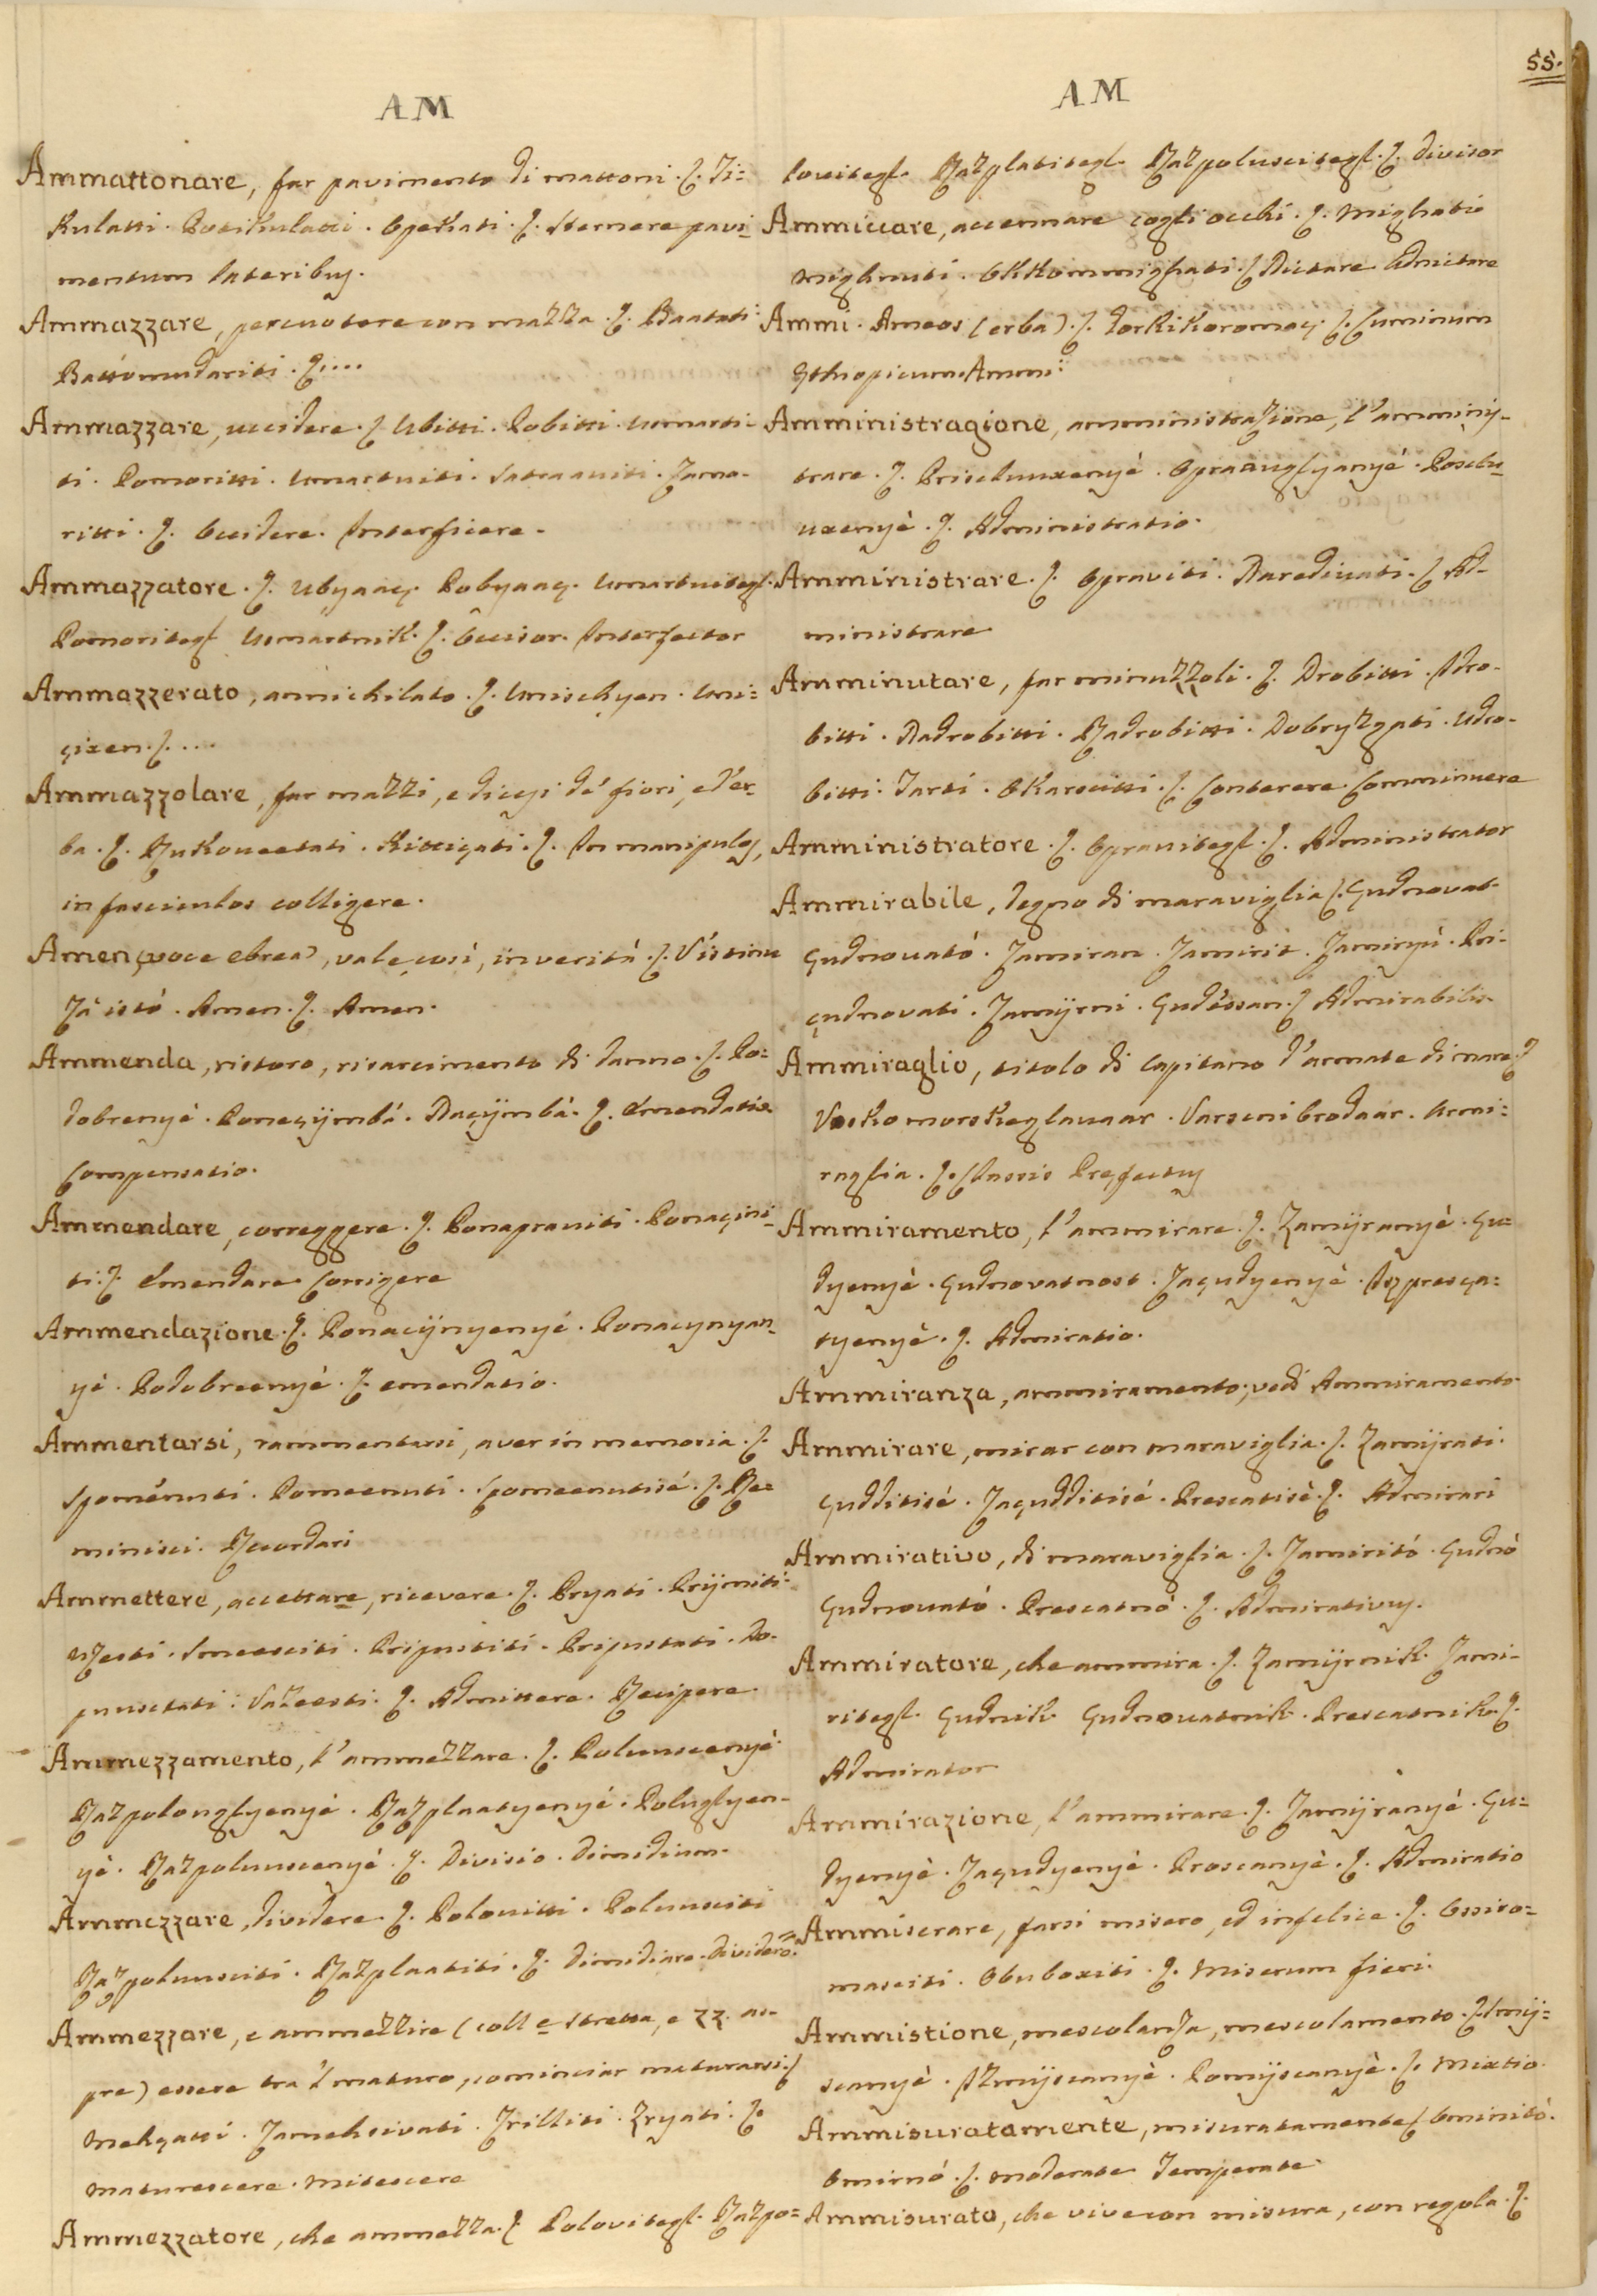 55.
AM
Ammattonare, far pavimento di mattoni. Ʃ. Ti=
kulatti. Potikulatti. Opekati. Ʃ. Sternere pavi=
mentum lateribus.
Ammazzare, percuotere con mazza. Ʃ. Baatati.
Battómudariti. Ʃ....
Ammazzare, uccidere. Ʃ. Ubitti. Pobitti. Umarti-
ti. Pomoritti. Umartviti. Zama-
ritti. Ʃ. Occidere. Interficere.
Ammazzatore. Ʃ. Ubyaaç. Pobyaaç. Umartvitegl.
Pomoritegl. Umartnik. Ʃ. Occisor. Interfector
Ammazzerato, annichilato. Ʃ. Unischyen. Uni=
çixen. Ʃ....
Ammazzolare, far mazzi, e dicesi dé fiori, e d'er-
ba. Ʃ. Rukoveetati. Kittiçati. Ʃ. In manipulos,
in fasciculos colligere.
Amen (voce ebrea), vale così, in verità. Ʃ. V'istinu
Zá istó. Amen. Ʃ. Amen.
Ammenda, ristoro, risarcimento di danno. Ʃ. Po=
dobrenyé. Ponaçijmbá. Naçijmbá. Ʃ. Emendatio.
Compensatio.
Ammendare, correggere. Ʃ. Ponapraviti. Ponaçini-
ti. Ʃ. Emendare. Corrigere
Ammendazione. Ʃ. Ponaçijnyenyé. Ponaçynyan-
yé. Podobreenyé. Ʃ. emendatio.
Ammentarsi, rammentarsi, aver in memoria. Ʃ.
Spoménuti. Pomeenuti. Spomeenutisé. Ʃ. Re=
minisci. Recordari
Ammettere, accettare, ricevere. Ʃ. Pryati. Prijmiti.
Uzesti. Smeesciti. Pripustiti. Pripustati. Do-
pusctati. Vazeesti. Ʃ. Admittere. Recipere.
Ammezzamento, l'ammezzare. Ʃ. Polunscenyé.
Razpolouglyenyé. Razplaatyenyé. Poluglyen-
yé. Razpolunscenyé. Ʃ. Divisio. Dimidium.
Ammezzare, dividere. Ʃ. Polovitti. Polunsciti
Razpolunsciti. Razplaatiti. Ʃ. Dimidiare. Dividere.
Ammezzare, e ammezzire (coll e stretta, e zz. as-
pre) essere tra 'l maturo, cominciar maturarsi. Ʃ
Mekçatti. Zamekscivati. Zrilliti. Zryati. Ʃ.
Maturescere. Mitescere
Ammezzatore, che ammezza. Ʃ. Polovitegl. Razpo=
AM
lovitegl. Razplatitegl. Razpoluscitegl. Ʃ. Divisor
Ammiccare, accennare cogli occhi. Ʃ. Mighatié
Mighnuti. Okkommighati. Ʃ Nictare Adnictare
Ammi. Ameos (erba). Ʃ. Ʃ. Cuminum
Ethiopicum. Ammi.
Amministragione, amministrazione, l'amminis-
trare. Ʃ. Priscluuxenyé. Opraauglyanyé. Posclu-
uxenyé. Ʃ. Administratio.
Amministrare. Ʃ. Opraviti. Naredivati. Ʃ Ad-
ministrare
Amminutare, far minuzzoli. Ʃ. Drobitti. Izdro-
bitti. Nadrobitti. Razdrobitti. Udro-
bitti. Tarti. Ʃ. Conterere. Comminuere
Amministratore. Ʃ. Opravitegl. Ʃ. Administrator
Ammirabile, degno di maraviglia Ʃ. Çudnovat.
Çudnovató. Zamiran. Zamirit. Pri-
çudnovati. Zamijrni. Ʃ Admirabilis.
Ammiraglio, titolo di Capitano d'armate di mare. Ʃ
Vasko morske glavaar. Varscni brodaar. Armi=
raglia. Ʃ. Classis Præfectus
Ammiramento, l'ammirare. Ʃ. Zamijranyé. Çu=
dyenyé. Çudnovatnost. Zaçudyenyé.
tyenyé. Ʃ. Admiratio.
Ammiranza, ammiramento; vedi Ammiramento.
Ammirare, mirar con maraviglia. Ʃ. Zamijrati.
Çudditisé. Zaçudditisé. Prescatisé. Ʃ. Admirari
Ammirativo, di maraviglia. Ʃ. Zamiritó. Çudnó
Çudnovató. Prescatnó. Ʃ. Admirativus.
Ammiratore, che ammira. Ʃ. Zamijrnik. Zami-
ritegl. Çudnik. Çudnovatnik. Prescatnik. Ʃ.
Admirator
Ammirazione, l'ammirare. Ʃ. Zamijranyé. Çu=
dyenyé. Zaçudyenyé. Prescanyé. Ʃ. Admiratio
Ammiserare, farsi misero, ed infelice. Ʃ. Ossiro=
masciti. Obuboxiti. Ʃ. Miserum fieri.
Ammistione, mescolanza, mescolamento. Ʃ. Smij=
scanyé. Izmijscanyé. Pomijscanyé. Ʃ. Mixtio.
Ammisuratamente, misuratamente. Ʃ Umiritó.
Umirnó. Ʃ. Moderate. Temperate.
Ammisurato, che vive con misura, con regola. Ʃ.